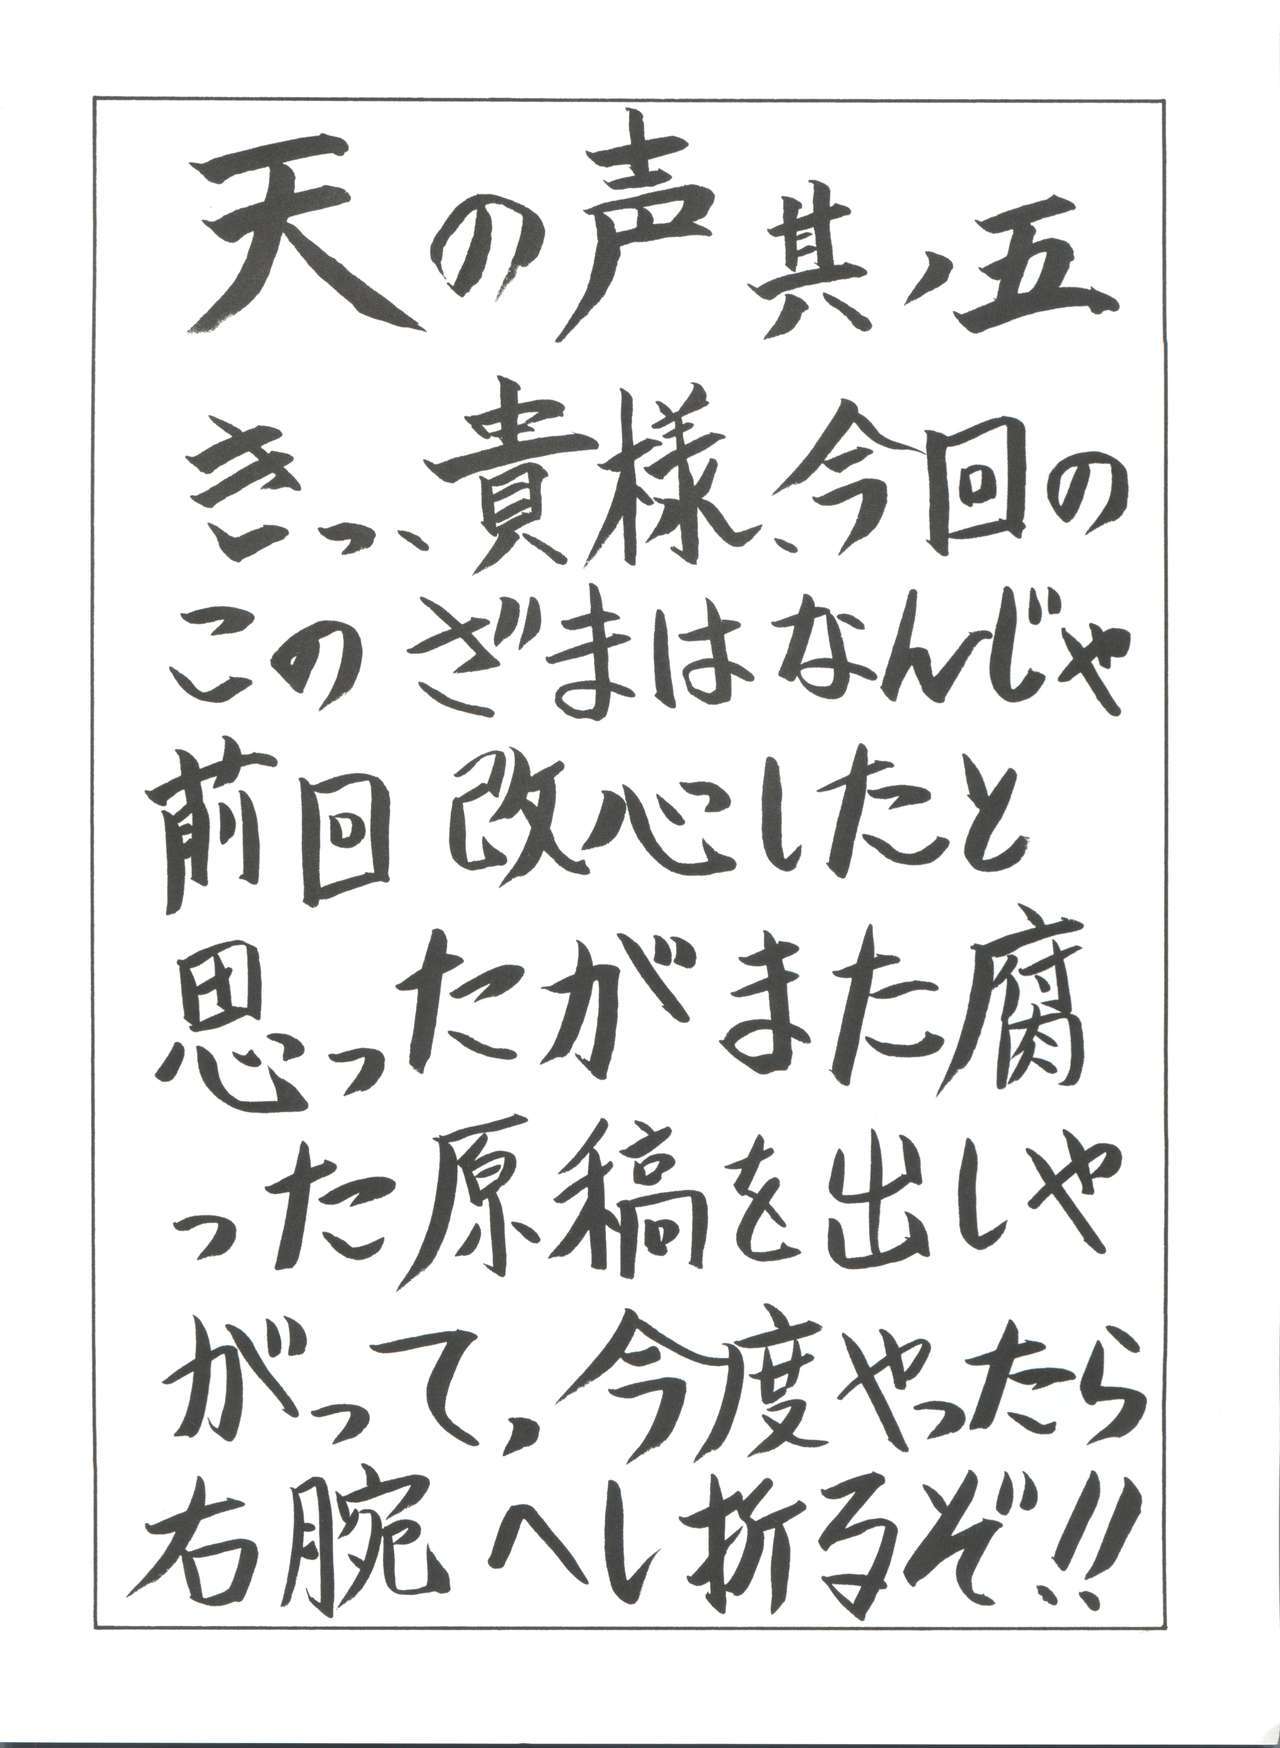 天の声 其ノ五
きっ、貴様、今回の
このざまはなんじゃ
前回改心したと
思ったがまた腐
った原稿を出しや
がって，今度やったら
右腕へし折るぞ!!